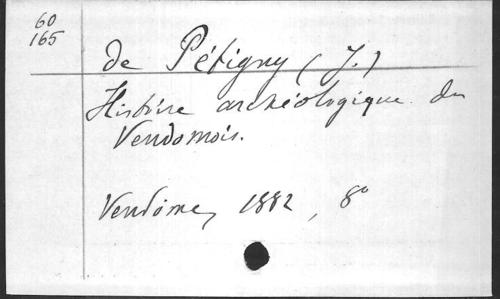 60
165
de Pétigny (J.)
Histoire archéologique du
Vendomois.
Vendôme, 1882, 8º